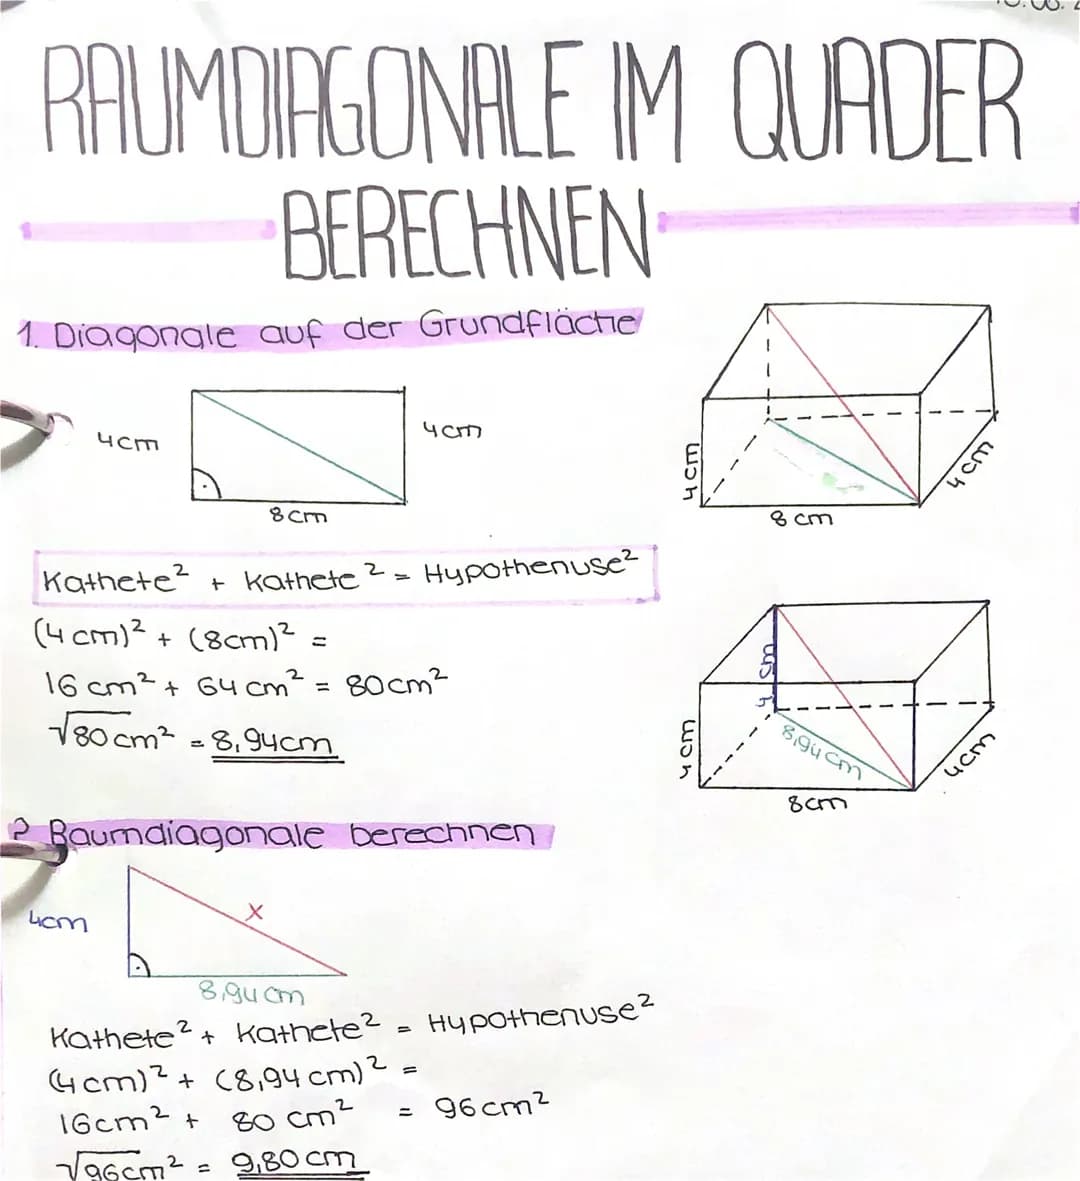 RAUMDIAGONALE IM QUADER
BERECHNEN
1. Diagonale auf der Grundfläche
4cm
4cm
8cm
4cm
8 cm
4cm
Kathete² + Kathete² = Hypothenuse²
(4cm)² + (8cm)² =
16 cm² + 64 cm² = 80cm²
√80cm² = 8,94cm
4cm
4cm
8,94cm
8cm
4cm
2 Raumdiagonale berechnen
4cm
x
8,94cm
Kathete² + Kathete² = Hypothenuse²
(4cm)² + (8,94cm)² =
16cm² + 80 cm² = 96cm²
√96cm² = 9,80cm